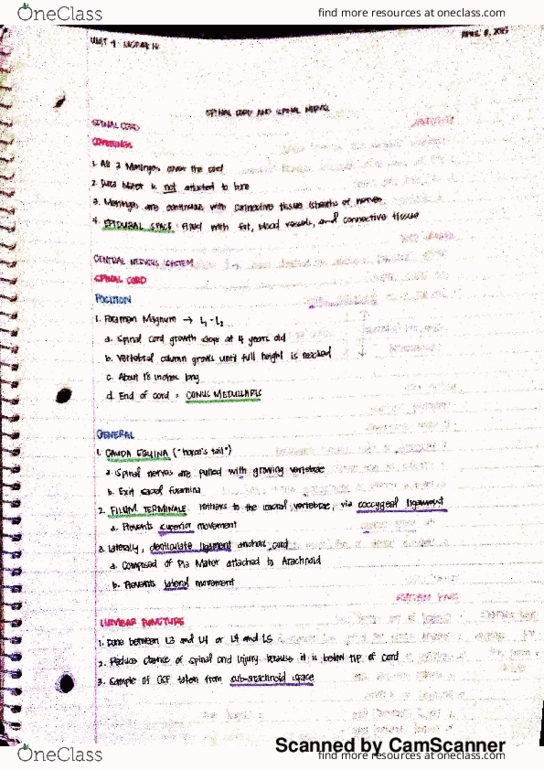 OneClass
find more resources at oneclass.com
APRIL 8, 2015
SPINAL CORD AND SPINAL NERVES
SPINAL CORD
COVERINGS
1. All 3 Meninges cover the cord
2. Dura Mater is not attached to bone
3. Meninges are continuous with connective tissue sheaths of nerves
4. EPIDURAL SPACE: filled with fat, blood vessels, and connective tissue
CENTRAL NERVOUS SYSTEM
SPINAL CORD
POSITION
1. Foramen Magnum → L1-L2
a. Spinal cord growth stops at 4 years old
b. Vertebral column grows until full height is reached
c. About 18 inches long
d. End of cord = CONUS MEDULLARIS
GENERAL
1. CAUDA EQUINA ("horse's tail")
a. Spinal nerves are pulled with growing vertebrae
b. Exit sacral foramina
2. FILUM TERMINALE to the sacral vertebrae, via coccygeal ligament
a. Prevents superior movement
3. Laterally, denticulate ligament anchors cord
a. Composed of Pia Mater attached to Arachnoid
b. Prevents lateral movement
LUMBAR PUNCTURE
1. Done between L3 and L4 or L4 and L5
2. Reduce chance of spinal cord injury because it is below tip of cord
3. Sample of CSF taken from subarachnoid space
Scanned by CamScanner
OneClass
find more resources at oneclass.com